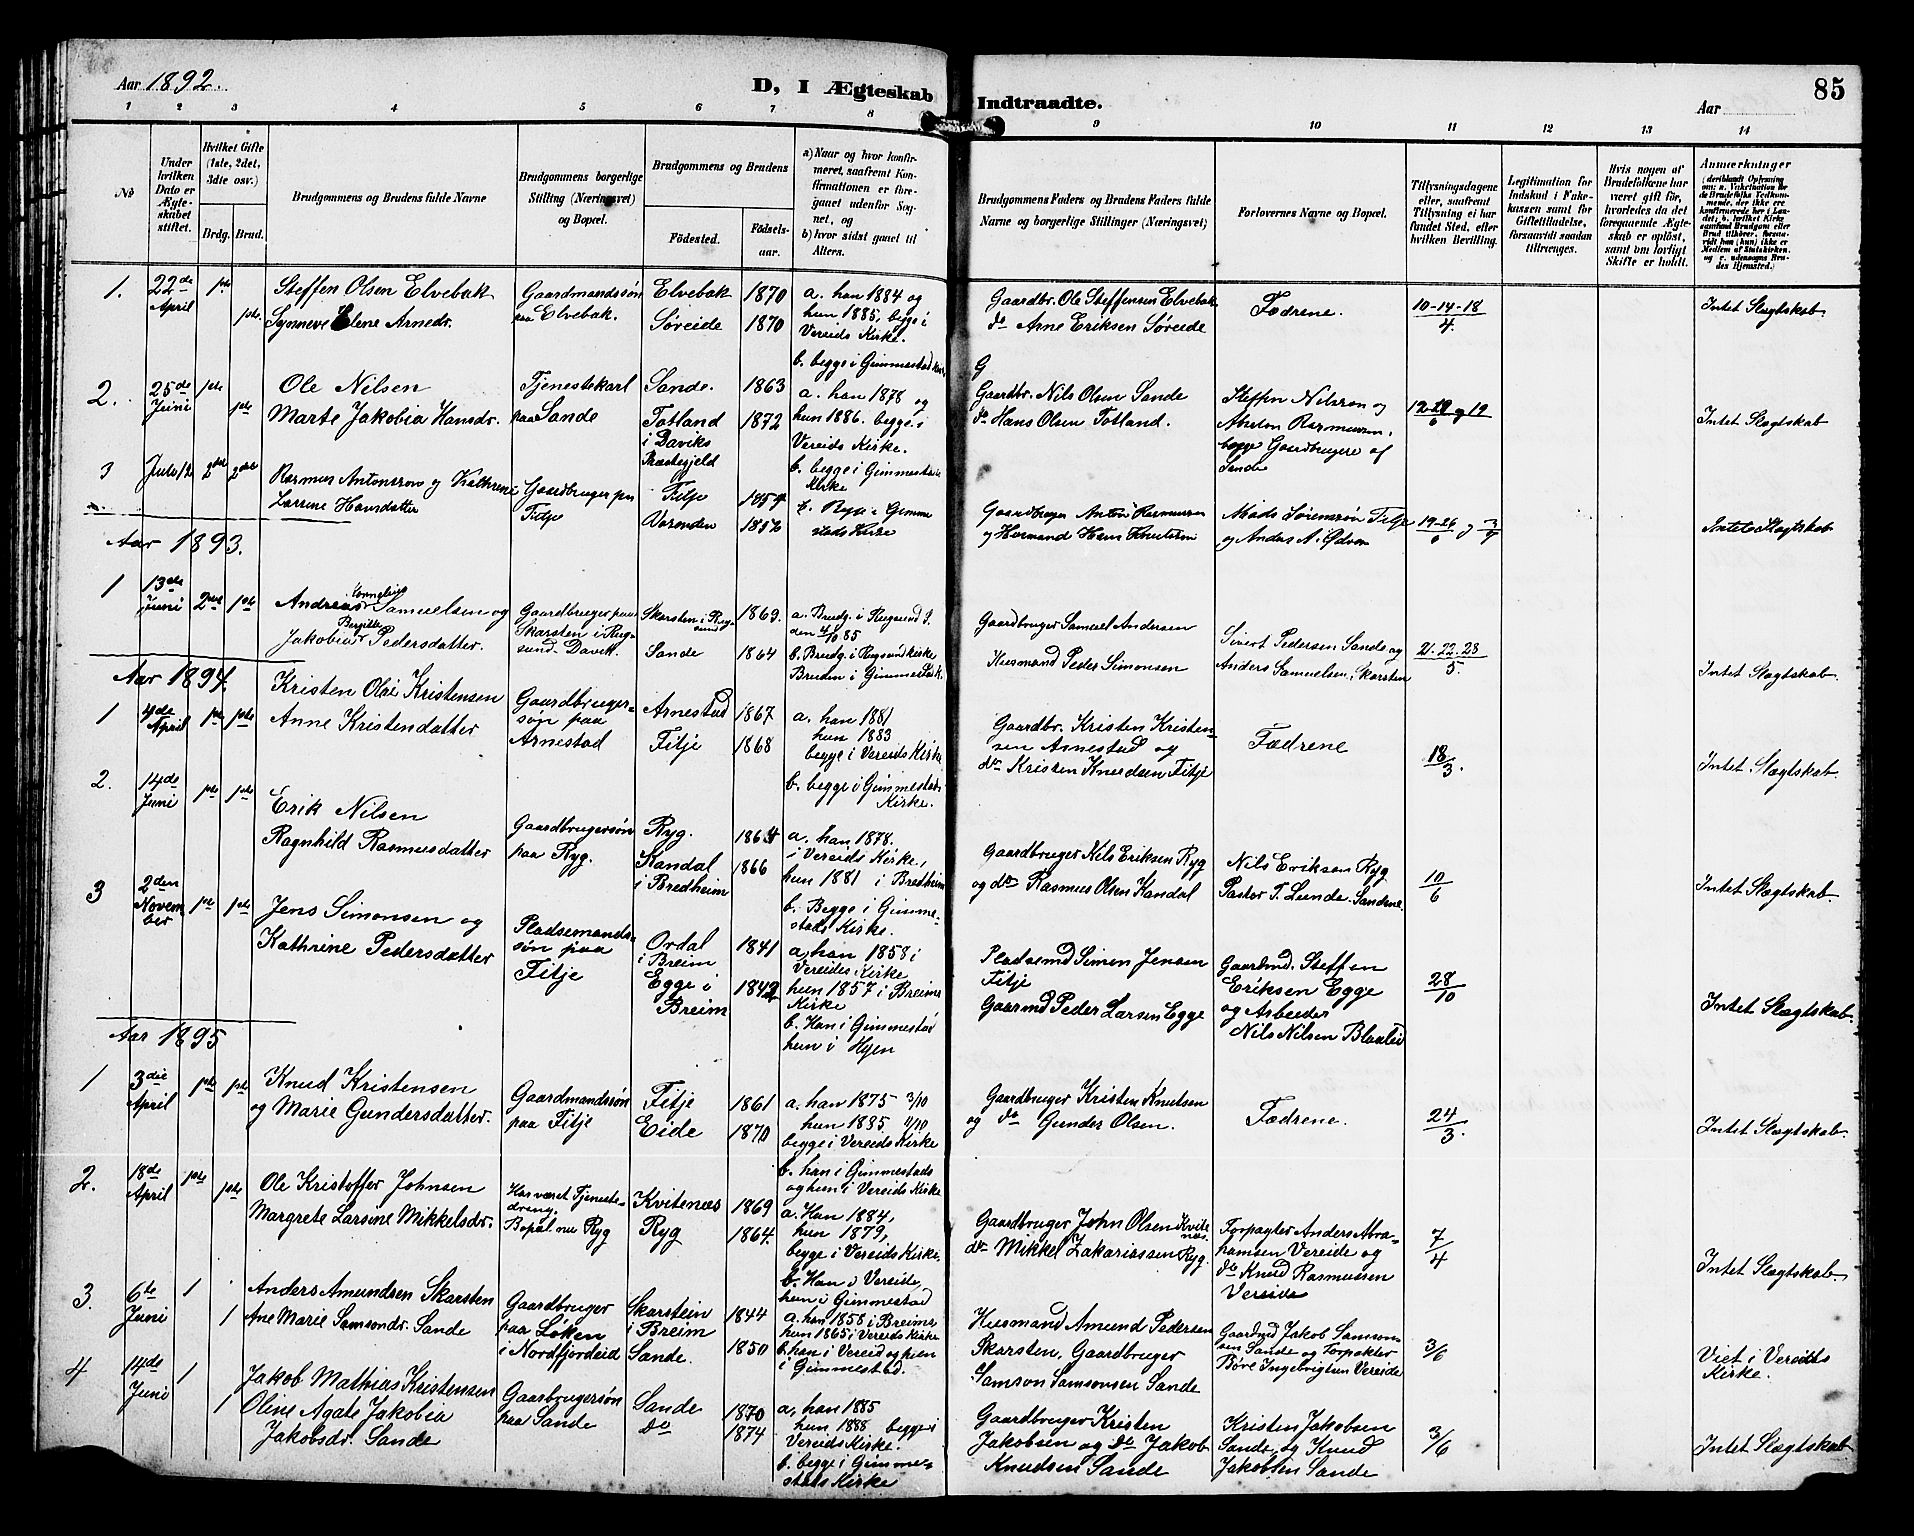 Aar 1892.
D, I Ægteskab Indtraadte.
Aar
85
1 2 3 4 5 6 7 8 9 10 11 12 13 14
No
Under hvilken Dato er Ægteskabet stiftet.
Hvilket Gifte (1ste, 2det, 3die osv.)
Brdg. Brud.
Brudgommens og Brudens fulde Navne
Brudgommens borgerlige Stilling (Næringsvei) og Bopæl.
Brudgommens og Brudens
Fødested.
Fødselsaar.
a) Naar og hvor konfirmeret, saafremt Konfirmationen er foregaaet udenfor Sognet, og
b) hvor sidst gaaet til Alters.
Brudgommens Faders og Brudens Faders fulde Navne og borgerlige Stillinger (Næringsvei)
Forlovernes Navne og Bopæl.
Tillysningsdagene eller, saafremt Tillysning ei har fundet Sted, efter hvilken Bevilling.
Legitimation for Indskud i Enkekassen samt for Giftetilladelse, forsaavidt saadan tiltrænges.
Hvis nogen af Brudefolkene har været gift før, hvorledes da det foregaaende Ægteskab er opløst, samt om lovligt Skifte er holdt.
Anmærkninger
1. 22de April 1ste
1ste
Steffen Olsen Elvebak
Synneve Elene Arnedr.
Gaardmandssøn
paa Elvebak.
Elvebak 1870
Søreide 1870
a. han 1884 og
hun 1885, begge i
Vereids Kirke.
b. begge i Gimmestad Kirke
Gaardbr. Ole Steffensen Elvebak
do Arne Eriksen Søreide
Fædrene.
10-14-18
4
Intet Slægtskab.
2. 25de Juni 1ste
1ste
Ole Nilsen
Marte Jakobia Hansdr.
Tjenestekarl
paa Sande
Sande. 1863
Totland 1872
i Daviks
Præstegjeld
a. han 1878 og
hun 1886. begge i
Vereids Kirke.
b. begge i Gimmestads
Kirke
G
Gaardbr. Nils Olsen Sande
do Hans Olsen Totland.
Steffen Nilsson og
Rasmussen.
begge Gaardbrugere af
Sande
og 19
6
Intet Slægtskab
3 Juli 12 2det 2det
Rasmus Antonsson og Kathrine
Larrine Hansdatter
Gaardbruger paa
Fitje
Fitje 1854
Varenden
b. Begge i Gimme
stads Kirke
Gaardbruger Anton Rasmussen
og Husmand Hans Knutson
Mads Sørenssøn Fitje
og Anders A. Ødven
19-26 og 3
6 7
Intet Slægtskab
Aar 1893.
1 13de Juni 2det 1ste
Andreas Kornelius Samuelsen og
Jakobia Bergitte Pedersdatter.
Gaardbruger paa
Skarsten i Rug-
sund. Davik.
Skarsten i Rugsund 1863.
Sande 1864
a. Brudg. i Rugsund K.
den 4/10 85
b. Brudg. i Rugsund kirke
Bruden i Gimmestad K.
Gaardbruger Samuel Andersen
Husmand Peder Simonsen
Sivert Pedersen Sande og
Anders Samuelsen, Skarsten
21. 22. 23
5.
Intet Slægtskab.
Aar 1894.
1 4de April 1ste 1ste
Kristen Olai Kristensen
Anne Kristendatter
Gaardbruger-
søn paa
Arnestad
Arnestad 1867
Fitje 1868
a. han 1881
hun 1883
begge i Vereids Kirke
b. begge i Gimmestads
Kirke.
Gaardbr. Kristen Kristen-
sen Arnestad og
do Kristen Knudsen Fitje
Fædrene
18
3.
Intet Slægtskab.
2. 14de Juni 1ste 1ste
Erik Nilsen
Ragnhild Rasmusdatter
Gaardbrugersøn
paa Ryg.
Ryg. 1864
Kandal 1866
i Bredheim
a. han 1878.
i Vereids Kirke,
hun 1881 i Bredheim
b. Begge i Gimme-
stads Kirke.
Gaardbruger Nils Eriksen Ryg
og do Rasmus Olsen Kandal
Nils Eriksen Ryg
Pastor T. Lunde. Sandene.
10
6
Intet Slægtskab.
3 2den November 1ste 1ste
Jens Simonsen og
Kathrine Pedersdatter
Pladsemands-
søn paa
Fitje
Ordal 1841
i Breim
Egge i 1842
Breim
a, han 1858 i
Vereids Kirke
hun 1857 i Breims
Kirke
b. Han i Gimmestad
hun i Hyen
Pladsemd Simon Jensen
Fitje
Gaarmd Peder Larsen Egge
Gaardmd. Steffen
Eriksen Egge
og Arbeider
Nils Nilsen Blaalid
28
10
Intet Slægtskab.
Aar 1895
1 3die April 1ste 1ste
Knud Kristensen
og Marie Gundersdatter.
Gaardmandssøn
paa Fitje
Fitje 1861
Eide 1870
a. han 1875 3/10
hun 1885 4/10
begge i Vereids Kirke
b. han i Gimmestads
og hun i Vereids Kirke
Gaardbruger Kristen Knutsen
og do Gunder Olsen.
Fædrene.
24
3.
Intet Slægtskab.
2. 18de April 1ste
1ste
Ole Kristoffer Johnsen
Margrete Larsine Mikkelsdr.
Har været Tjeneste-
dreng.
Bopæl nu Ryg
Kvitenæs 1869
Ryg 1864.
a. Han 1884,
hun 1879,
begge i Vereids Kirke.
b. Han i Vereide,
hun i Gimmestad
Gaardbruger John Olsen Kvitenæs.
do Mikkel Zakariassen Ryg.
Forpagter Anders Abra-
hamsen Vereide og
do Knud Rasmussen
Vereide
7
4
Intet Slægtskab
3. 6te Juni 1 .
1
Anders Amundsen Skarsten
Ane Marie Samsondr. Sande
Gaardbruger
paa Løken
i Nordfjordeid
Skarstein 1844
i Breim
Sande. 1850
a. han 1858 i Breims
hun 1865 i Vereids Kirke
b. han i Vereid og hun
i Gimmestad.
Husmand Amund Pedersen
Skarsten, Gaardbruger
Samson Samsonsen Sande
Gaardmd Jakob Samson-
sen Sande og Forpakter
Børe Ingebrigtsen Vereide
3/6
Viet i Vereids
Kirke.
4 14de Juni 1
1
Jakob Mathias Kristensen
Oline Agate Jakobia
Jakobsdr. Sande
Gaarbrugersøn
paa Sande
Sande 1870
do 1874
a, han 1885
hun 1888 begge i
Vereids Kirke.
b. begge i Gimme-
stads Kirke
Gaardbruger Kristen
Jakobsen og do Jakob
Knudsen Sande
Kristen Jakobsen
Sande og Knud
Jakobsen Sande
3/6
Intet Slægtskab